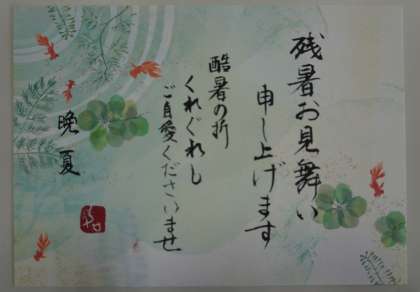 残暑お見舞い
申し上げます
酷暑の折
くれぐれも
ご自愛くださいませ
晩夏